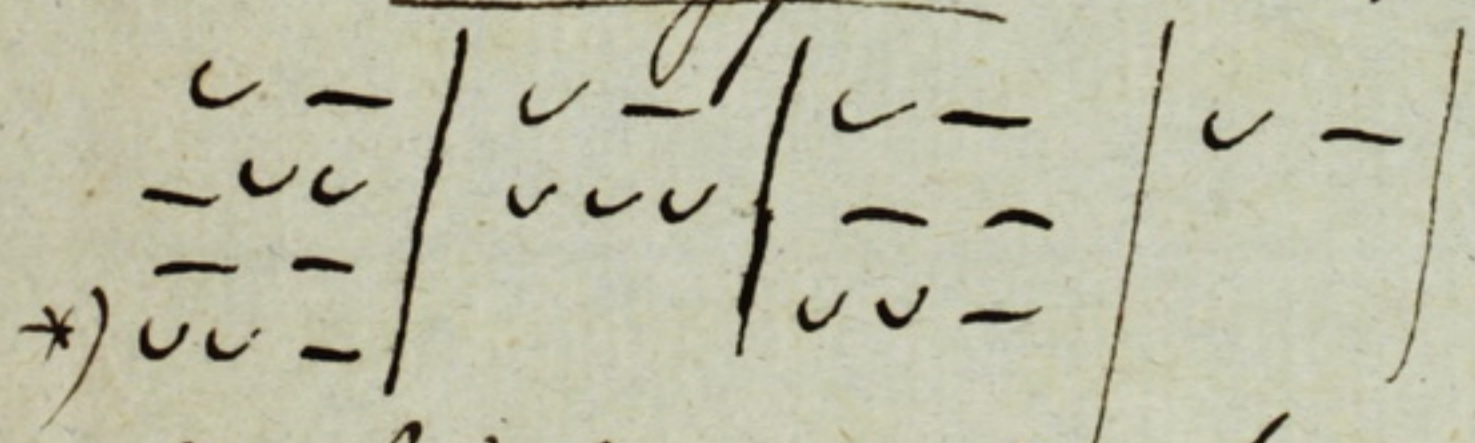 ∪ – | ∪ – | ∪ – | ∪ – |
– ∪ ∪ | ∪ ∪ ∪ | – – |
– – |
*) ∪ ∪ – | | ∪ ∪ – |